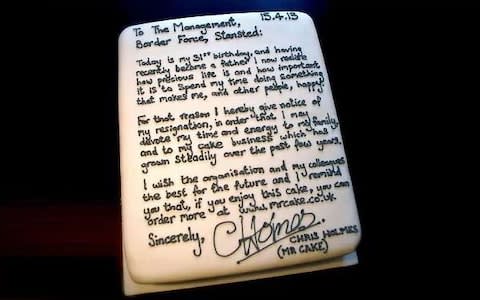 To The Management, 15.4.13
Border Force, Stansted:
Today is my 31st birthday, and having
recently become a father I now realise
how precious life is and how important
it is to spend my time doing something
that makes me, and other people, happy.
For that reason I hereby give notice of
my resignation, in order that I may
devote my time and energy to my family,
and to my cake business which has
grown steadily over the past few years.
I wish the organisation and my colleagues
the best for the future and I remind
you that, if you enjoy this cake, you can
order more at www.mrcake.co.uk.
Sincerely, CHolmes.
CHRIS HOLMES
(MR CAKE)